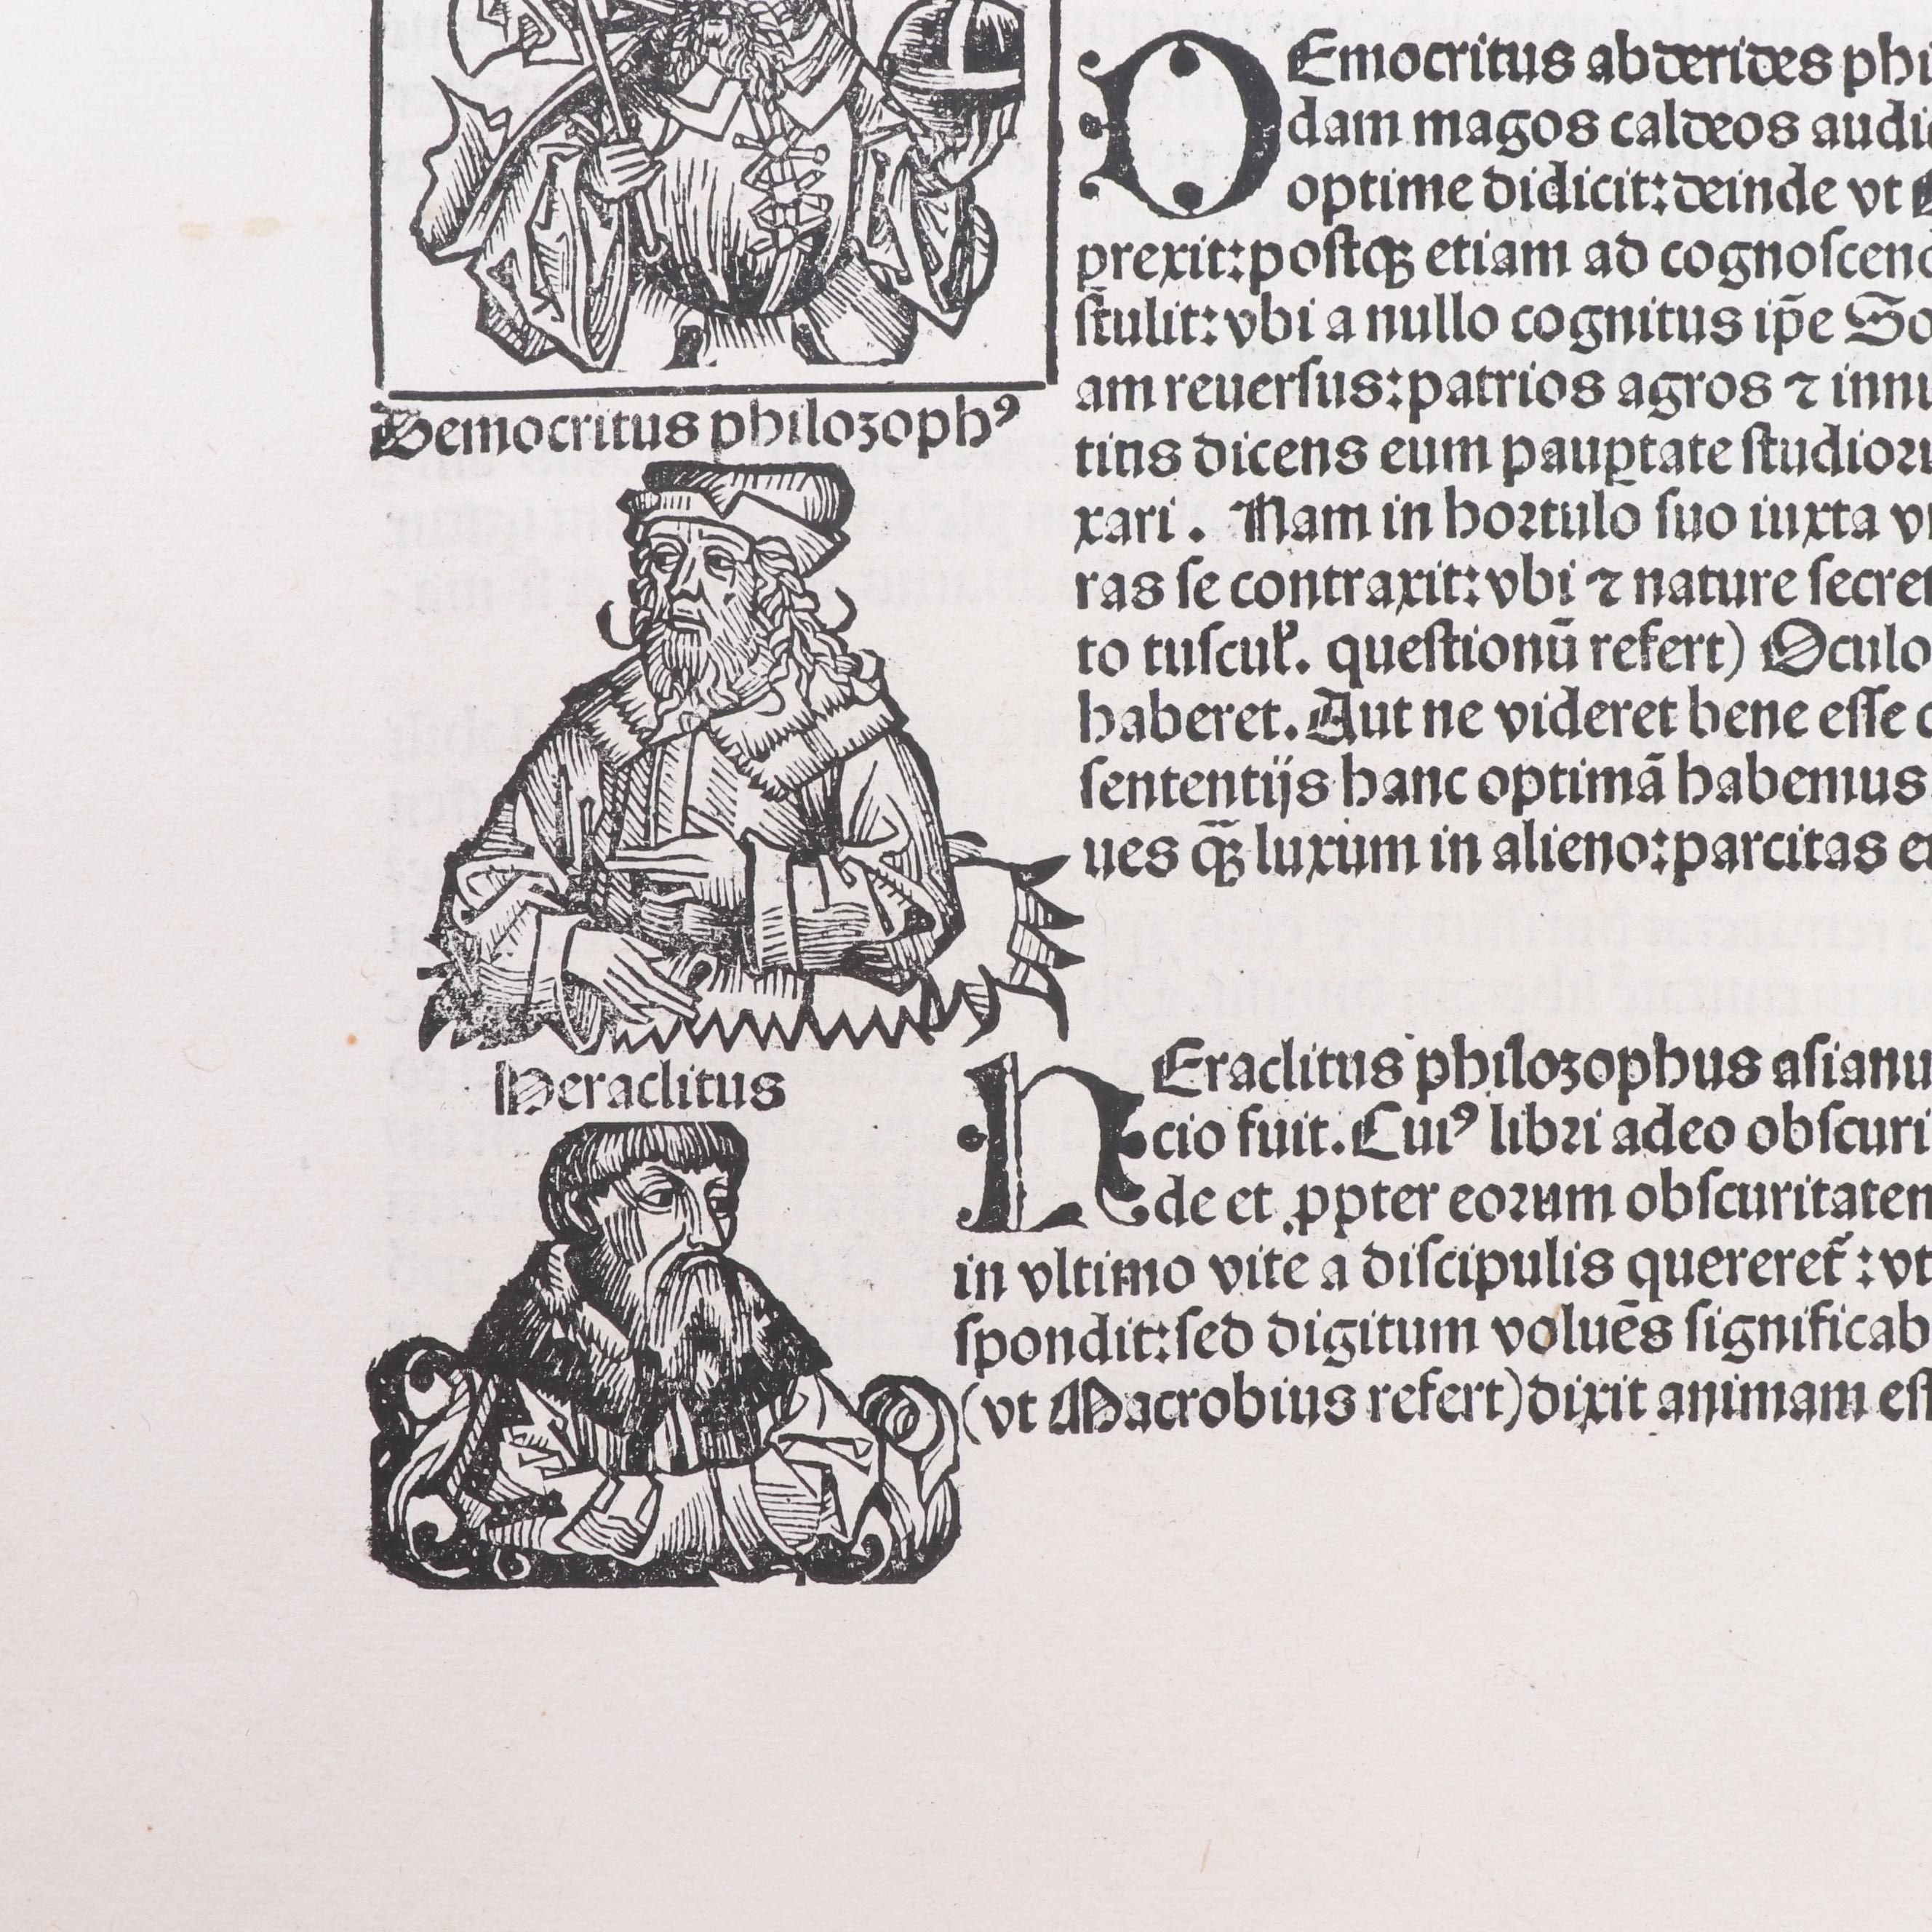 DEmocritus abderides phi
dam magos caldeos audi
optime didicit: deinde vt
prexit: postqꝫ etiam ad cognoscend
st̄ulit: vbi a nullo cognitus ip̄e So
am reuersus: patrios agros ⁊ innu
tius dicens eum paup̱tate studioru
xari. Nam in hortulo suo iuxta v
ras se contraxit: vbi ⁊ nature secre
to tuscul'. questionū refert) Oculo
haberet. Aut ne videret bene esse c
sententijs hanc optimā habemus.
ues qꝫ̄ luxum in alieno: parcitas e
Democritus philozophꝰ
HEraclitus philozophus asianu
cio fuit. Cuiꝰ libri adeo obscuri
de et ꝓpter eorum obscuritatem
in vltimo vite a discipulis quereret̄: vt
spondit: sed digitum voluēs significab
(vt Macrobius refert) dixit animam es
Heraclitus